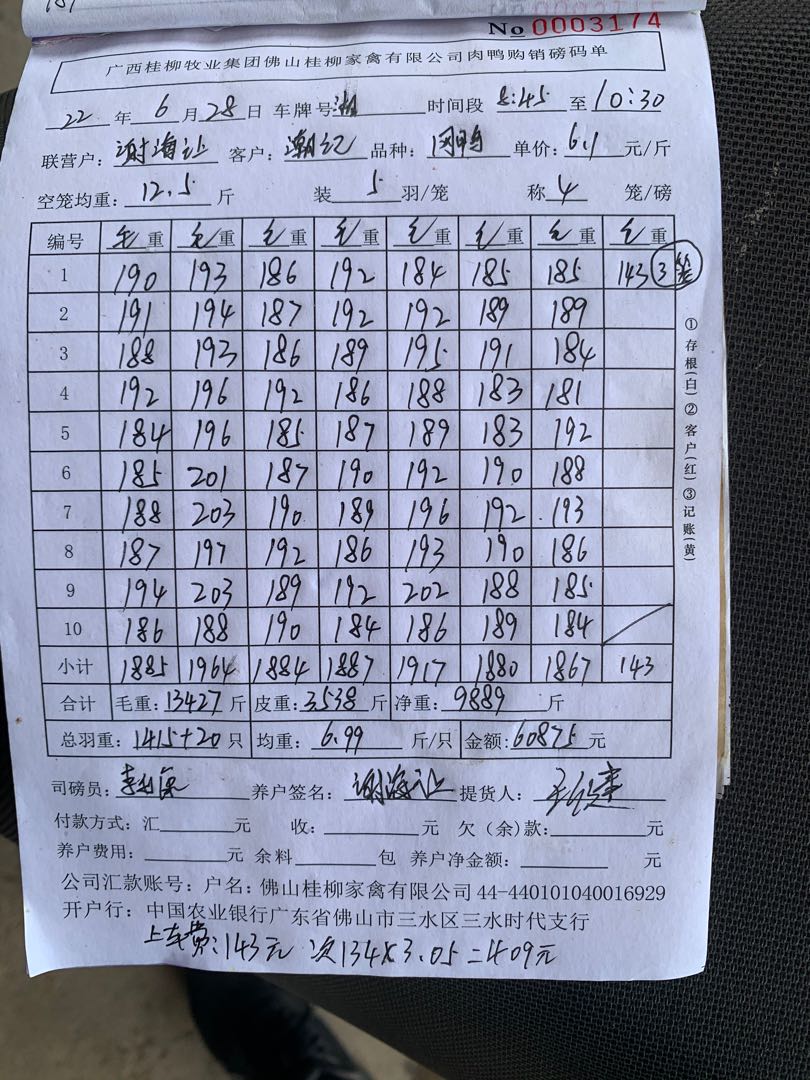 No 0003174
广西桂柳牧业集团佛山桂柳家禽有限公司肉鸭购销磅码单
22 年 6 月 28 日 车牌号 时间段 8:45 至 10:30
联营户: 谢海让 客户: 潮记 品种: 单价: 6.1 元/斤
空笼均重: 12.5 斤 装 5 羽/笼 称 4 笼/磅
编号 毛重 毛重 毛重 毛重 毛重 毛重 毛重 毛重
1 190 193 186 192 184 185 185 143 3笼
2 191 194 187 192 192 189 189
3 188 193 186 189 195 191 184
4 192 196 192 186 188 183 181
5 184 196 185 187 189 183 192
6 185 201 187 190 192 190 188
7 188 203 190 189 196 192 193
8 187 197 192 186 193 190 186
9 194 203 189 192 202 188 185
10 186 188 190 184 186 189 184
小计 1885 1964 1884 1887 1917 1880 1867 143
合计 毛重: 13427 斤 皮重: 3538 斤 净重: 9889 斤
总羽重: 1415+20 只 均重: 6.99 斤/只 金额: 60875 元
司磅员: 养户签名: 谢海让 提货人:
付款方式: 汇 元 收: 元 欠（余）款: 元
养户费用: 元 余料 包 养户净金额: 元
公司汇款账号: 户名: 佛山桂柳家禽有限公司 44-440101040016929
开户行: 中国农业银行广东省佛山市三水区三水时代支行
上车费: 143元 次134×3.05=409元
①存根(白)②客户(红)③记账(黄)